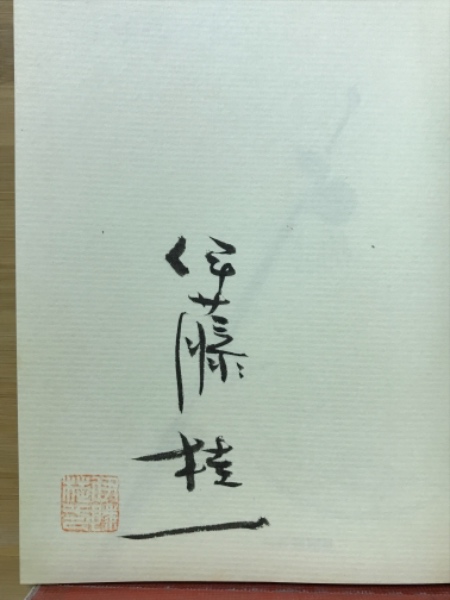 伊藤桂一